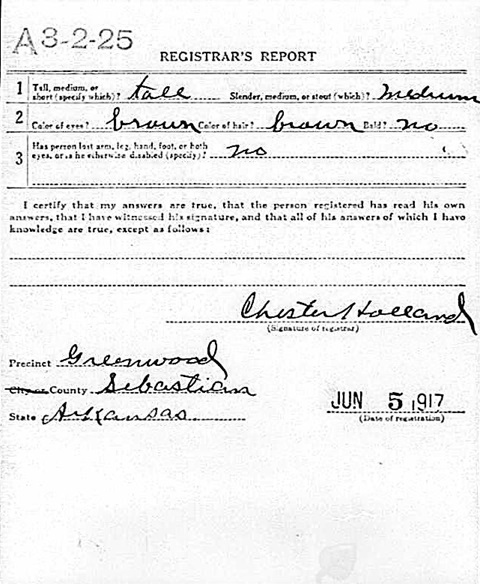 A3-2-25
REGISTRAR'S REPORT
1 Tall, medium, or short (specify which)? tall Slender, medium, or stout (which)? Medium
2 Color of eyes? brown Color of hair? brown Bald? no
3 Has person lost arm, leg, hand, foot, or both
eyes, or is he otherwise disabled (specify)? no
I certify that my answers are true, that the person registered has read his own
answers, that I have witnessed his signature, and that all of his answers of which I have
knowledge are true, except as follows:
Chester Holland
(Signature of registrar)
Precinct Greenwood
City or County Sebastian
State Arkansas
JUN 5 1917
(Date of registration)